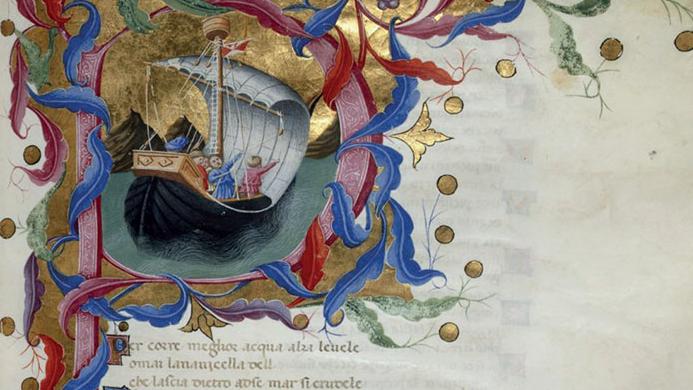 er corre meglior acqua alza leuele
omai lanauicella dell
che lascia dietro adse mar si crudele